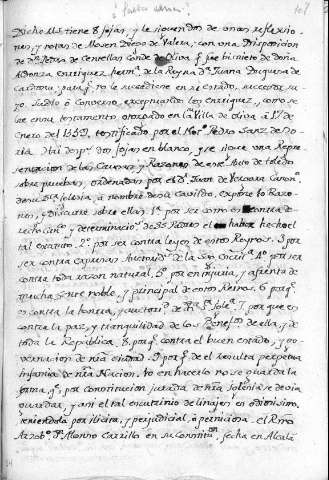 Dicho Ms. tiene 8 fojas, y le siguen dos de unas reflexio-
nes, y notas de Mosen Diego de Valera, con una Disposicion
de Dn. Pedro de Centellas Conde de Oliva q. fue bisnieto de doña
Aldonza Enriquez herm.a de la Reyna Da. Juana Duquesa de
Cardona, para q. no le succediese en su estado, succesor su-
yo Judio ô Converso, exceptuando los Enriquez, como se
lee en su testamento otorgado en la Villa de Oliva à 1.º de
Enero del 1552, testificado por el Not.º Pedro Sanz de So-
ria. Hai desp.s dos fojas en blanco, y se sigue una Repre-
sentacion de las Causas y Razones de este Auto de Toledo
sobre pruebas, ordenadas por el Dr. Juan de Vergara Canon.º
de su Sta. Iglesia, a nombre de su Cavildo. expone 10 Razo-
nes, y Discurre sobre ellas. 1.º por ser como es contra de-
recho Civ.l y determinacio.s de SS. Padres el haber hecho el
tal estatuto. 2.º por ser contra leyes de estos Reynos. 3. por
ser contra expresas Autorid.s de la Sta. Escri.ra 4.º por ser
contra toda razon natural. 5.º por en injuria, y afrenta de
mucha gente noble, y principal de estos Reinos. 6. porq.
es contra la honra, y autori.d de esta Sta. Igles.a 7. por que es
contra la paz, y tranquilidad de los Benefi.os de ella, y de
toda la Republica. 8. porq. contra el buen estado, y go-
vernacion de nra ciudad. 9. porq. de el resulta perpetua
infamia de nra Nacion. 10. en hacerlo no se guardó la
forma, q. por constitucion jurada de nra Iglesia se devia
guardar, y asi el tal escrutinio de linajes es odiosisimo,
teniendola por ilicita, y perjudicial, â perniciosa. el Rmo
Arzob.º Dn. Alonso Carrillo en su Constitu.on, fecha en Alcalà